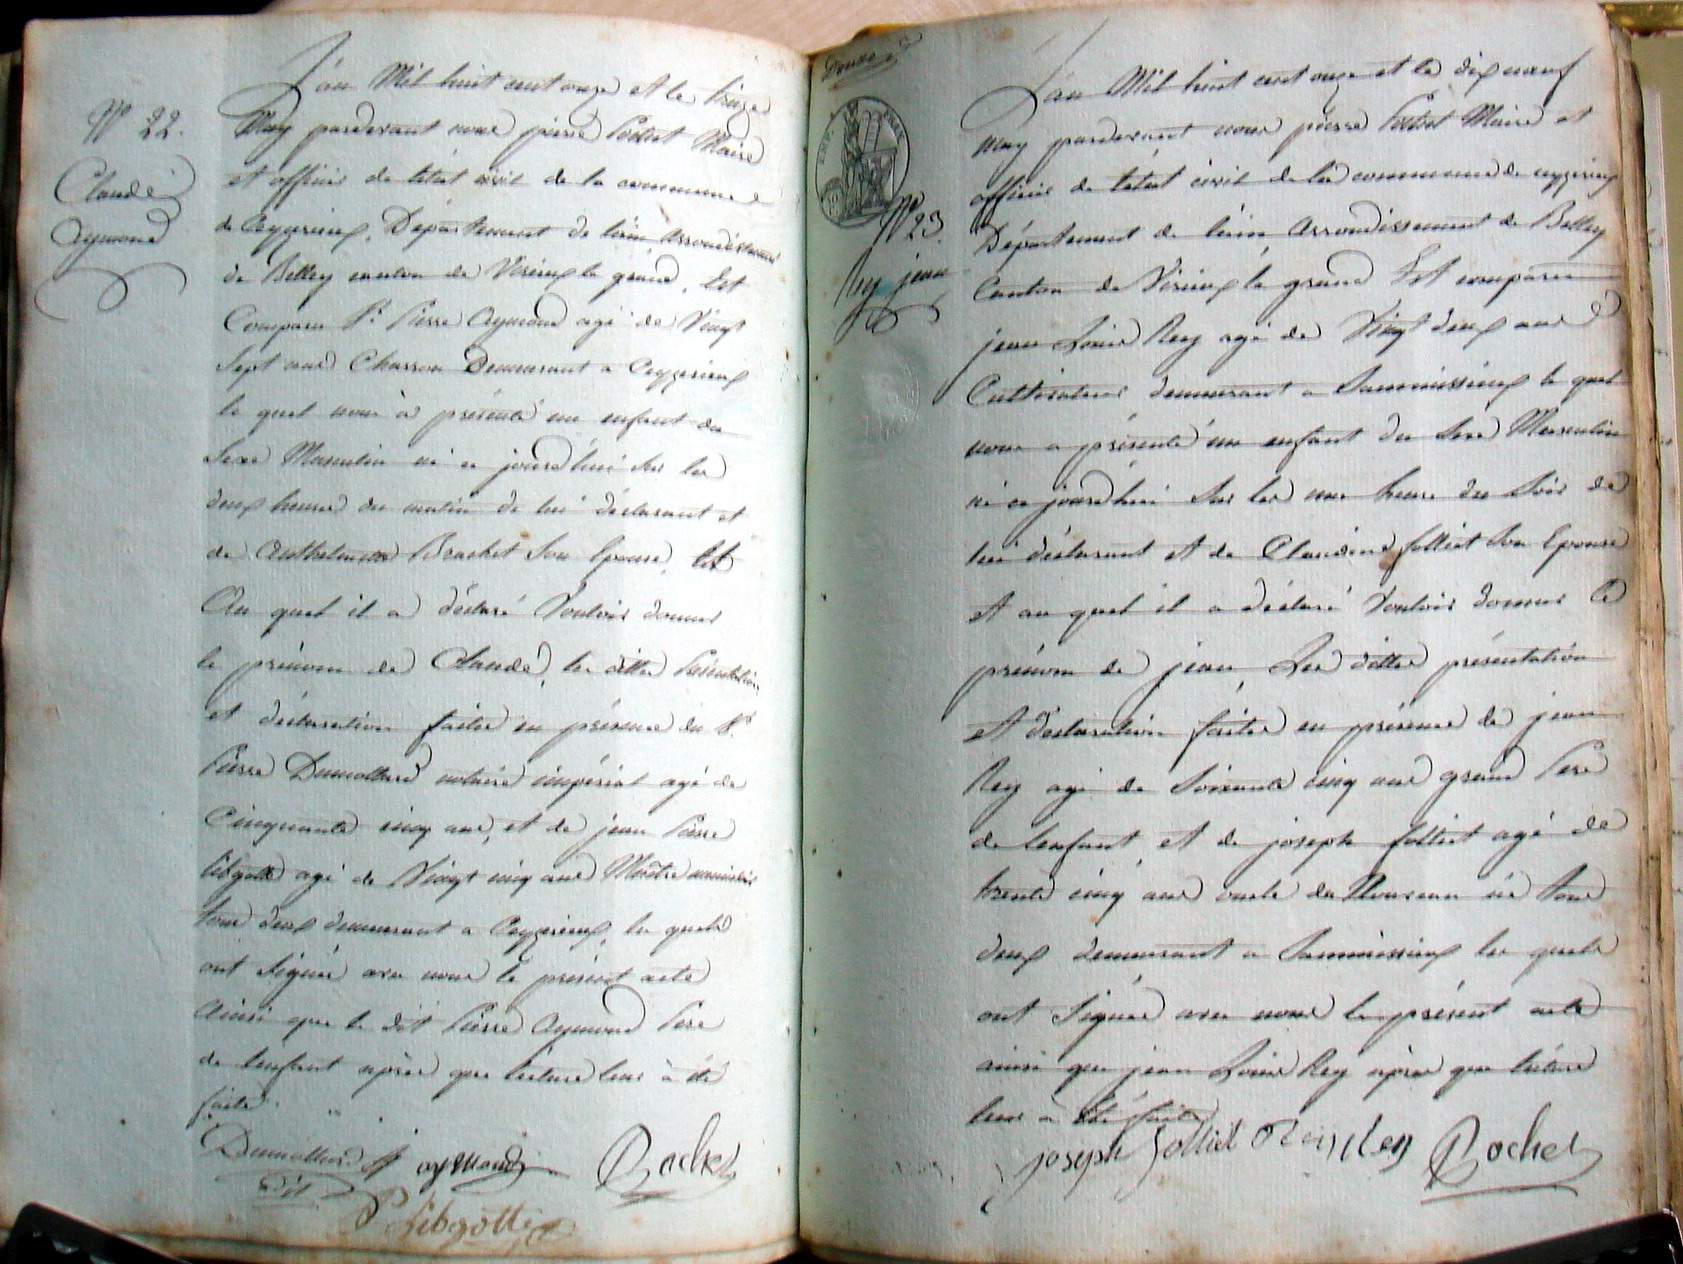 N° 22.
Claude
Aymond
L'an Mil huit cent onze et le treize
May pardevant nous pierre Maire
et officier de létat civil de la commune
de Ceyzerieux, Département de l'ain arrondissement
de Belley canton de Virieux le grand, Est
Comparu Sr. Pierre Aymond agé de Vingt
Sept ans Demeurant a Ceyzerieux
le quel nous à présenté un enfant du
Sexe Masculin né ce jourd'hui sur les
deux heures du matin de lui déclarant et
de Brachet Son Epouse, Et
Au quel il a déclaré Vouloir donner
le prénom de Claude, les dittes Présentation
et déclaration faites en présence du Sr.
Pierre Dumollard notaire impérial agé de
Cinquante cinq ans, et de jean Pierre
Libgotte agé de Vingt cinq ans
tous deux demeurant a Ceyzerieux, les quels
ont Signés avec nous le présent acte
Ainsi que le dit Pierre Aymond Père
de lenfant après que lécture leur à été
faite.
Dumollard aymond Rochet
Libgotte
Douze
N° 23.
Rey jean
L'an Mil huit cent onze et le dix neuf
may pardevant nous pierre Maire et
officier de létat civil de la commune de ceyzerieux
Département de l'ain arrondissement de Belley
Canton de Virieux le grand Est comparu
jean Louis Rey agé de Vingt deux ans
Cultivateur demeurant a Sammissieux le quel
nous a présenté un enfant du Sexe Masculin
né ce jourd'hui Sur les une heure du Soir de
lui déclarant et de Claudine folliet Son Epouse
et au quel il a déclaré Vouloir donner le
prénom de jean, Les dittes présentation
et déclaration faites en présence de jean
Rey agé de Soixante cinq ans grand Pere
de lenfant et de joseph folliet agé de
trente cinq ans oncle du Nouveau né tous
deux demeurant a Sammissieux les quels
ont Signés avec nous le présent acte
ainsi que jean Louis Rey après que lécture
leur à été faite
joseph folliet Rey Rey Rochet